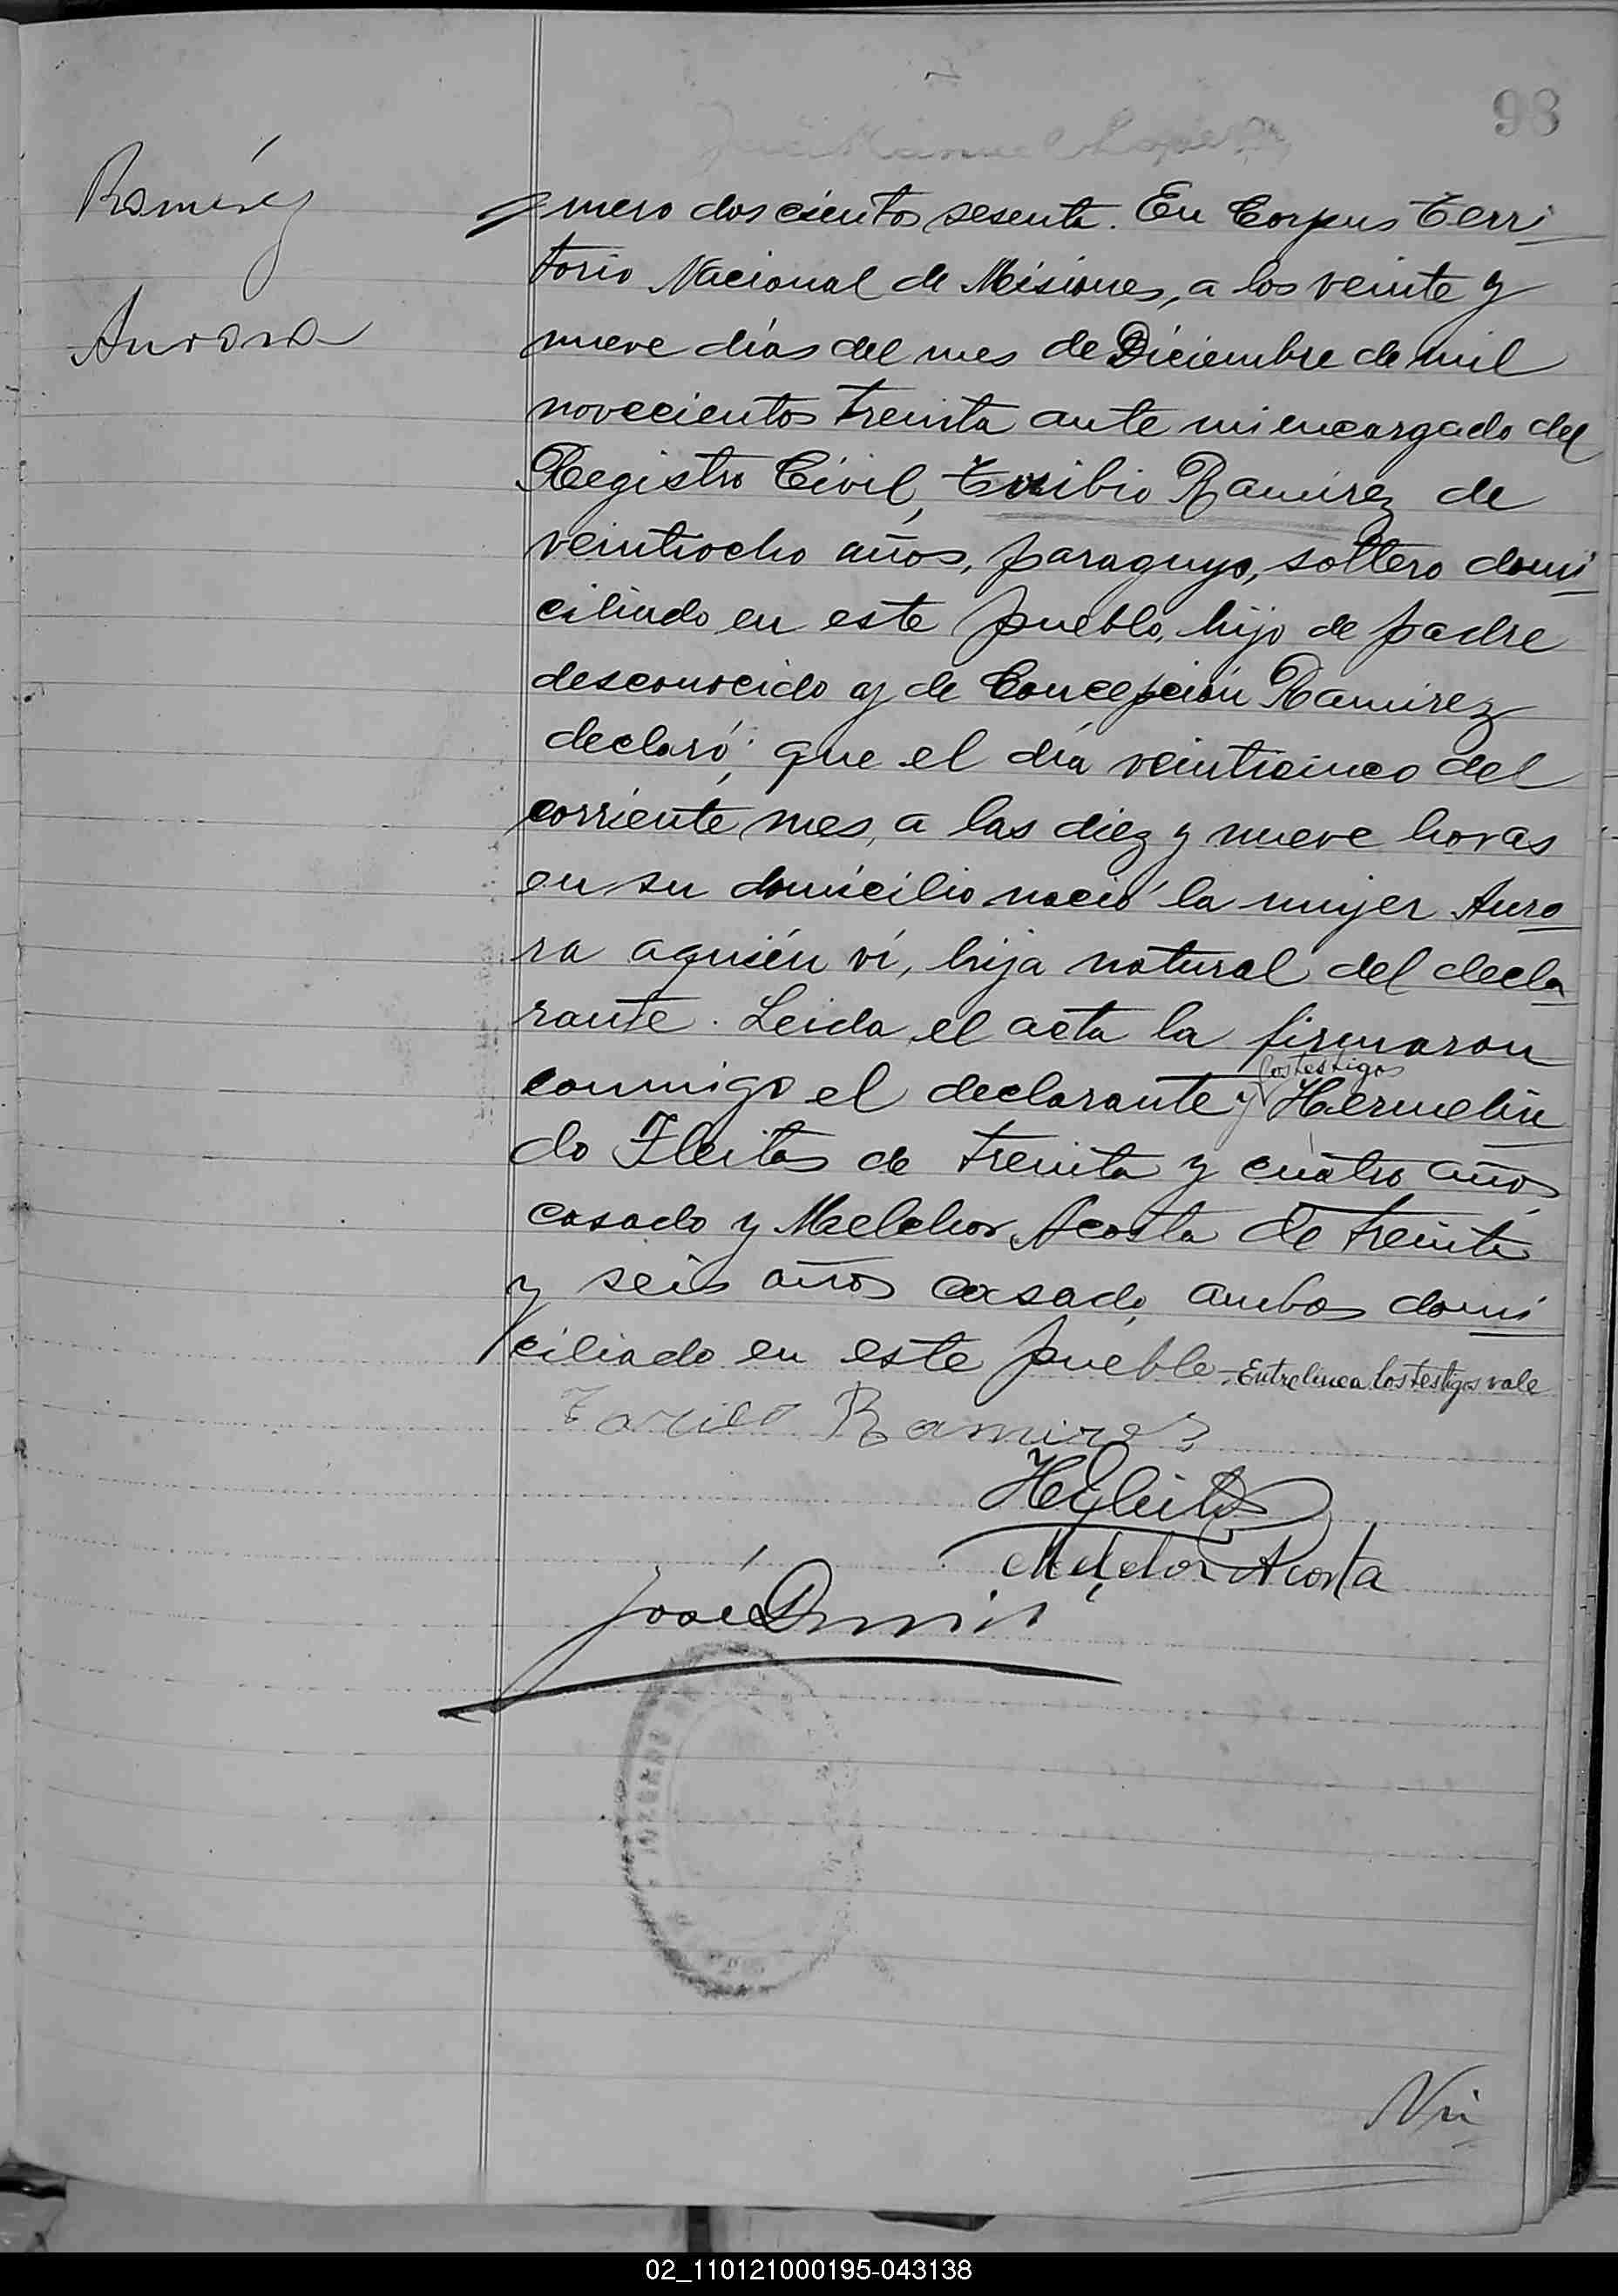 98
Ramírez
Aurora
mero dos cientos sesenta. En Corpus Terri
torio Nacional de Misiones, a los veinte y
nueve días del mes de Diciembre de mil
novecientos treinta ante mi encargado del
Registro Civil, Toribio Ramírez de
veintiocho años, paraguyo, soltero domi
ciliado en este pueblo, hijo de padre
desconocido y de Concepción Ramirez
declaró; que el día veinticinco del
corriente mes, a las diez y nueve horas
en su domicilio nació la mujer Auro
ra aquién ví, hija natural del decla
rante. Leida el acta la firmaron
los testigos
conmigo el declarante y Hermelin
do Fleitas de treinta y cuatro años
casado y Melchor Acosta de treinta
y seis años casado, ambos domi
ciliado en este pueblo - Entrelinea los testigos vale
Ramirez
HFleitas
Melchor Acosta
José
JUZGADO DE
Nú
02_110121000195-043138